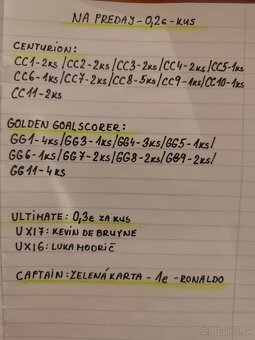 NA PREDAJ - 0,2e - KUS
CENTURION:
CC1-2KS/CC2-2KS/CC3-2KS/CC4-2KS/CC5-1KS
CC6-1KS/CC7-2KS/CC8-5KS/CC9-1KS/CC10-1KS
CC11-2KS
GOLDEN GOALSCORER:
GG1-4KS/GG3-1KS/GG4-3KS/GG5-1KS/
GG6-1KS/GG7-2KS/GG8-2KS/GG9-2KS/
GG11-4KS
ULTIMATE: 0,3e ZA KUS
UX17: KEVIN DE BRUYNE
UX16: LUKA MODRIČ
CAPTAIN: ZELENÁ KARTA - 1e - RONALDO